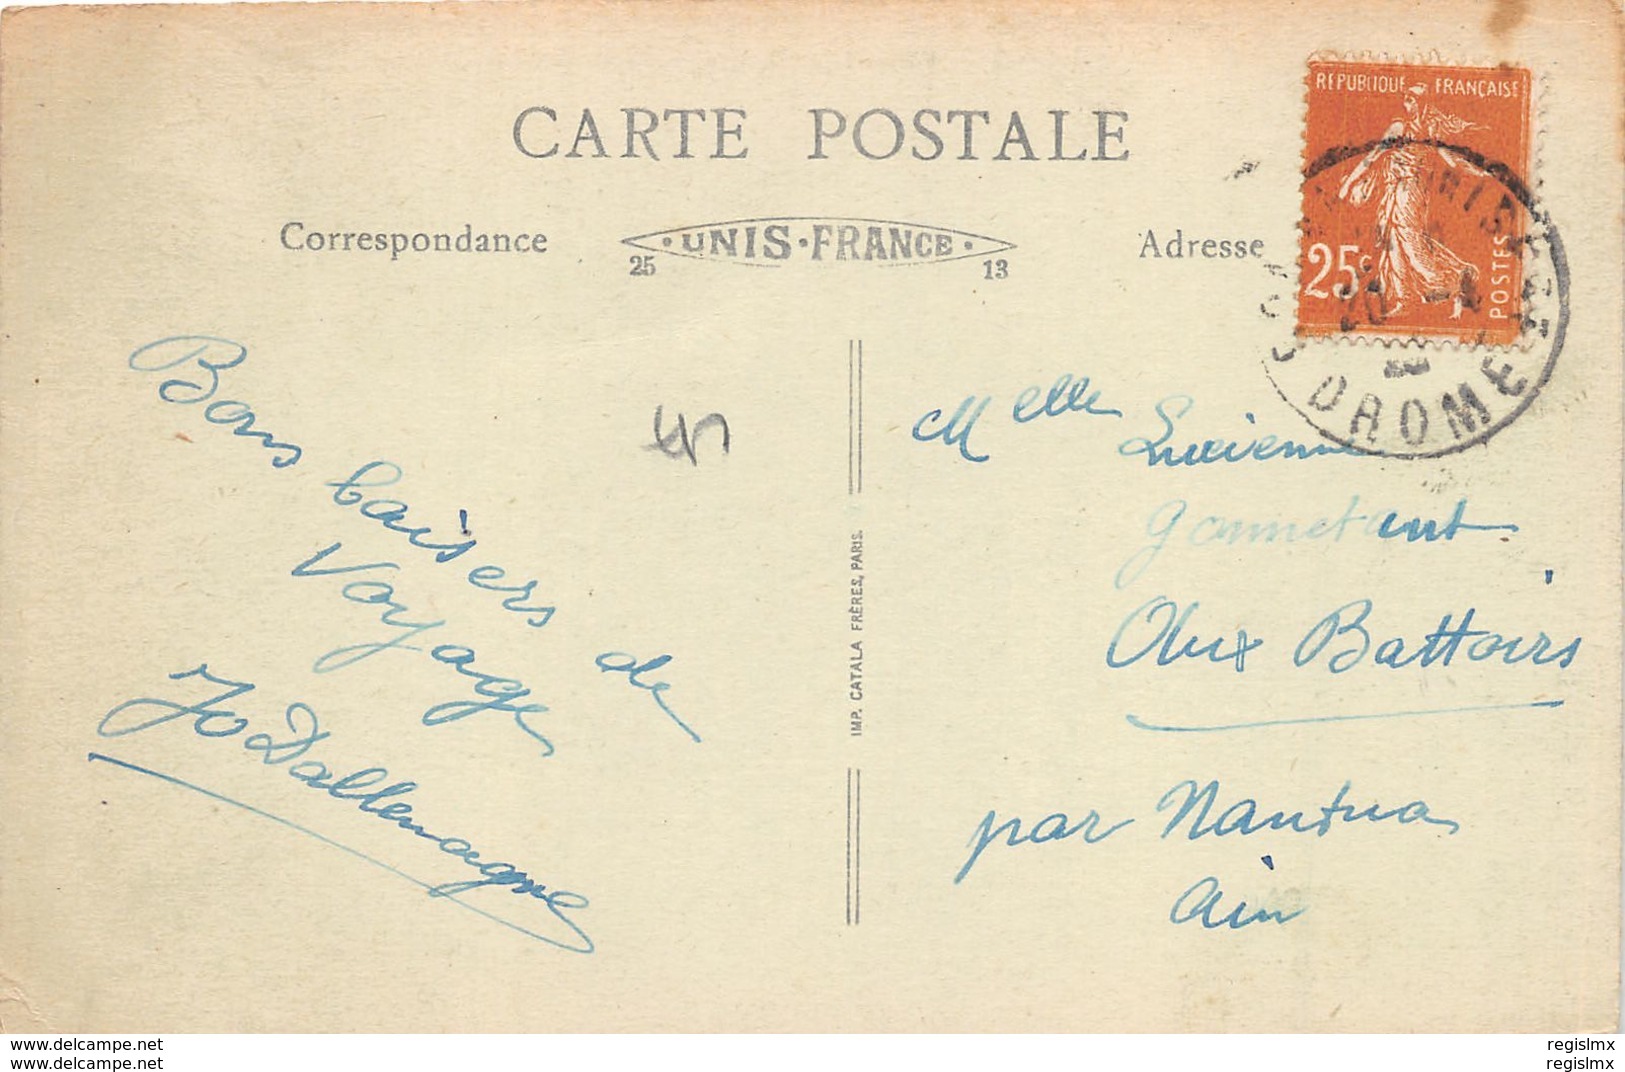 CARTE POSTALE
Correspondance
UNIS-FRANCE
25 13
Adresse
REPUBLIQUE FRANÇAISE
25c
POSTES
DROME
Bons baisers de
Voyage
Jo Dallemagne
IMP. CATALA FRÈRES, PARIS.
Melle Lucienne
Gonnetant
Aux Battoirs
par Nantua
Ain
www.delcampe.net
www.delcampe.net
regislmx
regislmx